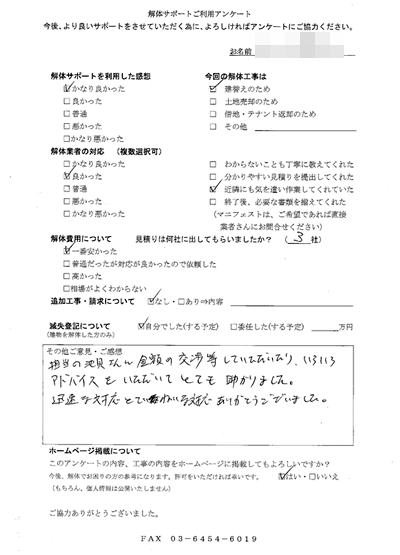 解体サポートご利用アンケート
今後、より良いサポートをさせていただく為に、よろしければアンケートにご協力ください。
お名前
解体サポートを利用した感想
☑かなり良かった
□良かった
□普通
□悪かった
□かなり悪かった
今回の解体工事は
☑建替えのため
□土地売却のため
□借地・テナント返却のため
□その他
解体業者の対応 (複数選択可)
□かなり良かった
☑良かった
□普通
□悪かった
□かなり悪かった
□わからないことも丁寧に教えてくれた
□分かりやすい見積りを提出してくれた
☑近隣にも気を遣い作業してくれていた
□終了後、必要な書類を揃えてくれた
(マニフェストは、ご希望であれば直接
業者さんにお問合せください)
解体費用について 見積りは何社に出してもらいましたか? (3社)
☑一番安かった
□普通だったが対応が良かったので依頼した
□高かった
□相場がよくわからない
追加工事・請求について ☑なし・□あり⇒内容
滅失登記について ☑自分でした(する予定) □委任した(する予定) 万円
(建物を解体した方のみ)
その他ご意見・ご感想
担当の池見さんに金額の交渉等していただいたり、いろいろ
アドバイスをいただいてとても助かりました。
迅速な対応とていねいな対応ありがとうございました。
ホームページ掲載について
このアンケートの内容、工事の内容をホームページに掲載してもよろしいですか?
今後、解体でお困りの方の参考になります。許可をいただければ幸いです。 ☑はい・□いいえ
(もちろん、個人情報は公開いたしません)
ご協力ありがとうございました。
FAX 03-6454-6019